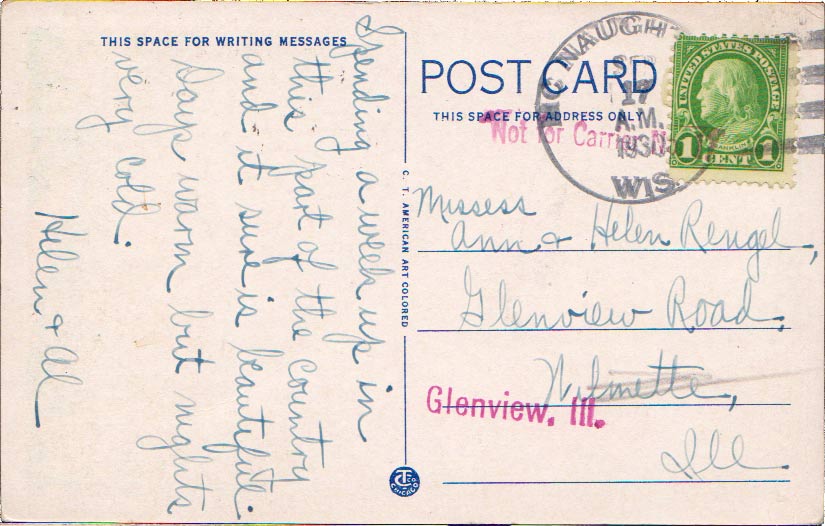 THIS SPACE FOR WRITING MESSAGES
Spending a week up in
this part of the country
and it sure is beautiful.
Days warm but nights
very cold.
Helen & Al
C. T. AMERICAN ART COLORED
CHICAGO
POST CARD
THIS SPACE FOR ADDRESS ONLY
Not for Carrier
MC NAUGH
SEP
17
A.M.
1930
WIS.
UNITED STATES POSTAGE
FRANKLIN
1 CENT 1
Missess
Ann & Helen Rengel,
Glenview Road,
Wilmette,
Glenview, Ill.
Ill.